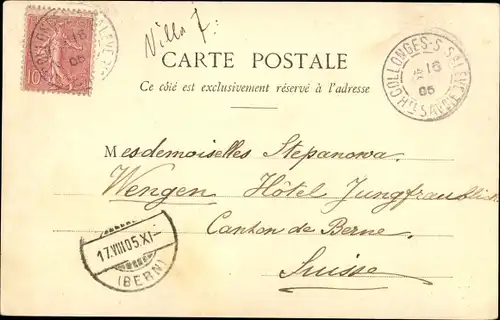 Villa 7:
10
COLLONGES-S-SALEVE
16
05
CARTE POSTALE
Ce côté est exclusivement réservé à l'adresse
COLLONGES-S-SALEVE
16
05
HTE SAVOIE
Mesdemoiselles Stepanowa.
Wengen Hôtel Jungfraublick
Canton de Berne.
Suisse
WENGEN
17.VIII.05.XI-
(BERN)